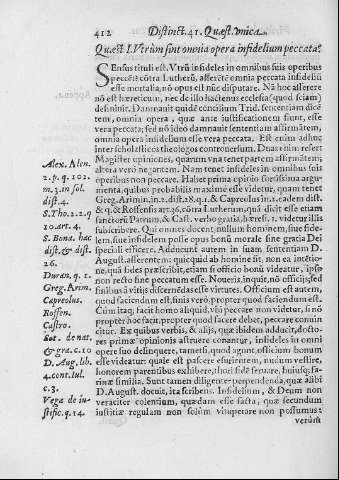 412 Distinct.41. Quæst.vnica.
Quæst I. Vtrùm sint omnia opera infidelium peccata?
SEnsus tituli est. Vtrũ infideles in omnibus suis operibus
peccẽt: cõtra Lutherũ, asserẽtẽ omnia peccata infideliũ
esse mortalia, nõ opus est nũc disputare. Nã hoc asserere
nõ est hæreticum, nec de illo hactenus ecclesia (quod sciam)
definiuit. Damnauit quidẽ concilium Trid. sententiam dicẽ
tem, omnia opera, quæ ante iustificationem fiunt, esse
vera peccata, sed nõ ideò damnauit sententiam affirmãtem,
omnia opera infidelium esse vera peccata. Est enim adhuc
inter scholasticos theologos controuersum. Duas nãm refert
Magister opiniones, quarum vna tenet partem affirmãtem,
altera verò negantem. Nam tenet infideles in omnibus suis
operibus non peccare. Habet prima opinio fortissima argu-
mẽta, quibus probabilis maximè esse videtur, quam tenet
Greg. Arimin. in 2. dist. 28. q. 1. & Capreolus in 1. eadem dist.
& q. & Roffensis art. 36. cõtra Lutherum, quã dicit esse etiam
sanctorũ Patrum, & Cast. verbo gratia, hæresi. 1. videtur illis
subscribere. Qui omnes docent, nullum hominem, siue fide-
lem, siue infidelem posse opus bonũ morale sine gratia Dei
speciali efficere. Adducunt autem in suam sententiam D.
August. asserentem: quicquid ab homine fit, non ea intẽtio-
ne, quã fides præscribit, etiam si officio bonũ videatur, ipso
non recto fine peccatum esse. Noueris, inquit, nõ officijs, sed
finibus à vitijs discernẽdas esse virtutes. Officium est autem,
quod faciendum est, finis verò, propter quod faciendum est.
Cùm itaq; facit homo aliquid, vbi peccare non videtur, si nõ
propter hoc facit, propter quod facere debet, peccare conuin
citur. Ex quibus verbis, & alijs, quæ ibidem adducit, docto-
res primæ opinionis astruere conantur, infideles in omni
opere suo delinquere, tametsi, quod agunt, officium bonum
esse videatur quale est pascere esurientem, nudum vestire,
honorem parentibus exhibere, thori fidẽ seruare, huiusq; fa-
rinæ similia. Sunt tamen diligenter perpendenda, quæ alibi
D. August. docuit, ita scribens. Infidelium, & Deum non
veraciter colentium, quædam esse facta, quæ secundum
iustitiæ regulam non solùm vituperare non possumus:
verùm
Alex. Alen.
2. p. q. 102.
m. 3. in sol.
dist. 4.
S. Tho. 2. 2. q
10. art. 4.
S. Bona. hac
dist. & dist.
26.
Duran. q. 2.
Greg. Arim.
Capreolus.
Roffen.
Castro.
Sot. de nat.
& gra. c. 10
D. Aug. lib.
4. cont. Iul.
c. 3.
Vega de iu-
stific. q. 14.